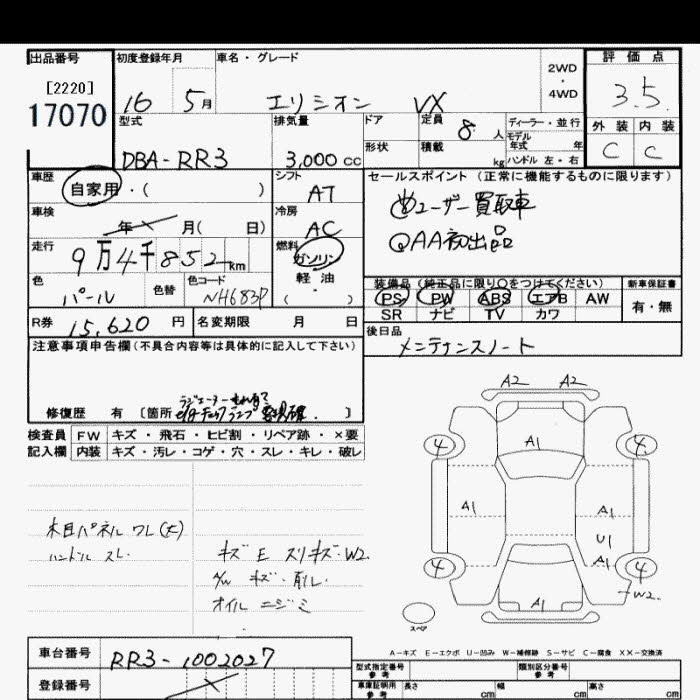 出品番号 初度登録年月 車名・グレード 評価点
[2220] 2WD・4WD
17070 16 5月 エリシオン VX 3.5
型式 排気量 ドア 定員 8人 ディーラー・並行 外装 内装
モデル年式 年
DBA-RR3 3,000cc 形状 積載 kg ハンドル 左・右 C C
車歴 シフト セールスポイント (正常に機能するものに限ります)
自家用・( ) AT ユーザー買取車
車検 年 月( 日) 冷房 AC QAA初出品
走行 9万4千852km 燃料 ガソリン
軽油 装備品(純正品に限り○をつけてください) 新車保証書
色 パール 色替 色コード NH683P ( ) PS PW ABS エアB AW 有・無
SR ナビ TV カワ
R券 15,620円 名変期限 月 日 後日品
注意事項申告欄(不具合内容等は具体的に記入して下さい) メンテナンスノート
修復歴 有 [箇所 ]
検査員 FW キズ・飛石・ヒビ割・リペア跡・×要
記入欄 内装 キズ・汚レ・コゲ・穴・スレ・キレ・破レ
木目パネル ワレ(大)
ハンドル スレ
キズ E スリキズ・W2
A/W キズ・削レ
オイル ニジミ
A2 A2
4 A1 4
A1 A1
U1
A1
4 4
W2
A1
スペア
A-キズ E-エクボ U-凹み W-補修跡 S-サビ C-腐食 XX-交換済
車台番号 RR3-1002027 型式指定番号 参考 類別区分番号 参考
登録番号 車庫証明用 参考 長さ cm 幅 cm 高さ cm